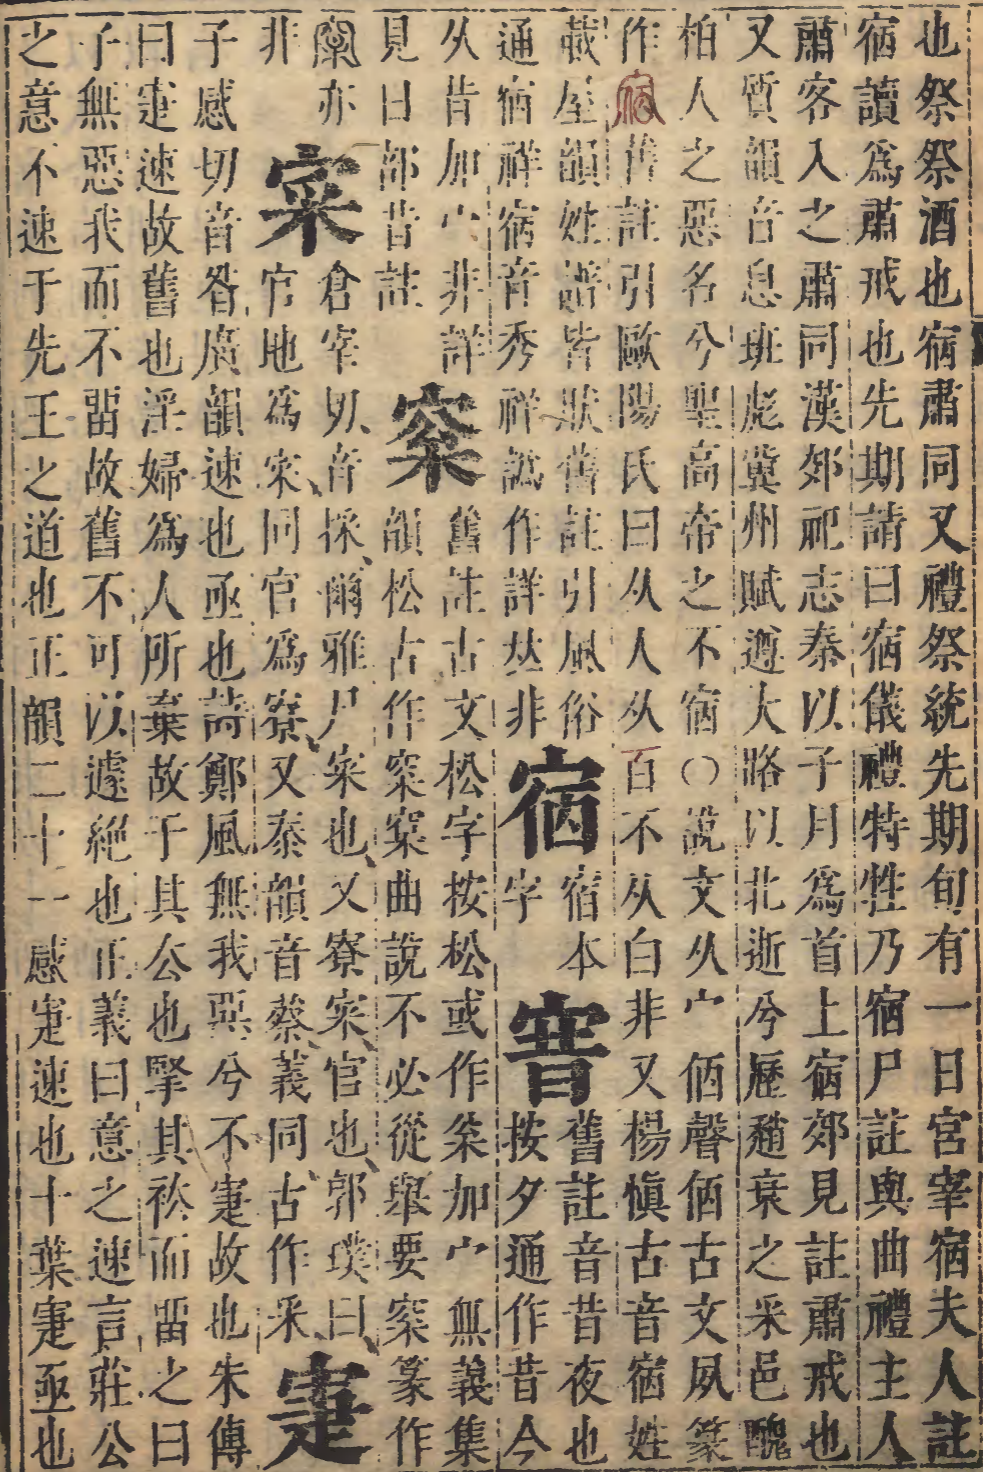 也祭祭酒也宿肅同又禮祭統先期旬有一日宮宰宿夫人註
宿讀爲肅戒也先期請曰宿儀禮特牲乃宿尸註與曲禮主人
肅客入之肅同漢郊祀志秦以子月爲首上宿郊見註肅戒也
又質韻音息班彪冀州賦遵大路以北逝兮歷趙衰之采邑醜
柏人之惡名兮聖高帝之不宿〇說文从宀㐁聲㐁古文夙篆
作舊註引歐陽氏曰从人从百不从白非又楊慎古音宿姓
藏屋韻姓譜皆狀舊註引風俗
通宿祥宿音秀祥誠作詳𠀤非
宿
宿本
字
㝛
舊註音昔夜也
按夕通作昔今
从昔加宀非詳
見日部昔註
舊註古文松字按松或作枀加宀無義集
韻松古作曲說不必從舉要篆作
亦
非
寀
倉宰切音採爾雅尸寀也又寮寀官也郭璞曰
官地爲寀同官爲寮又泰韻音蔡義同古作采
寁
子感切音昝廣韻速也亟也詩鄭風無我惡兮不寁故也朱傳
曰寁速故舊也淫婦爲人所棄故于其公也擥其袪而畱之曰
子無惡我而不畱故舊不可以遽絕也正義曰意之速言莊公
之意不速于先王之道也正韻二十一感寁速也十葉寁亟也